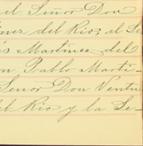 el Señor Don
ínez del Rio; el Se
is Martinez del
on Pablo Marti-
Señor Don Ventu
del Rio y la Se-